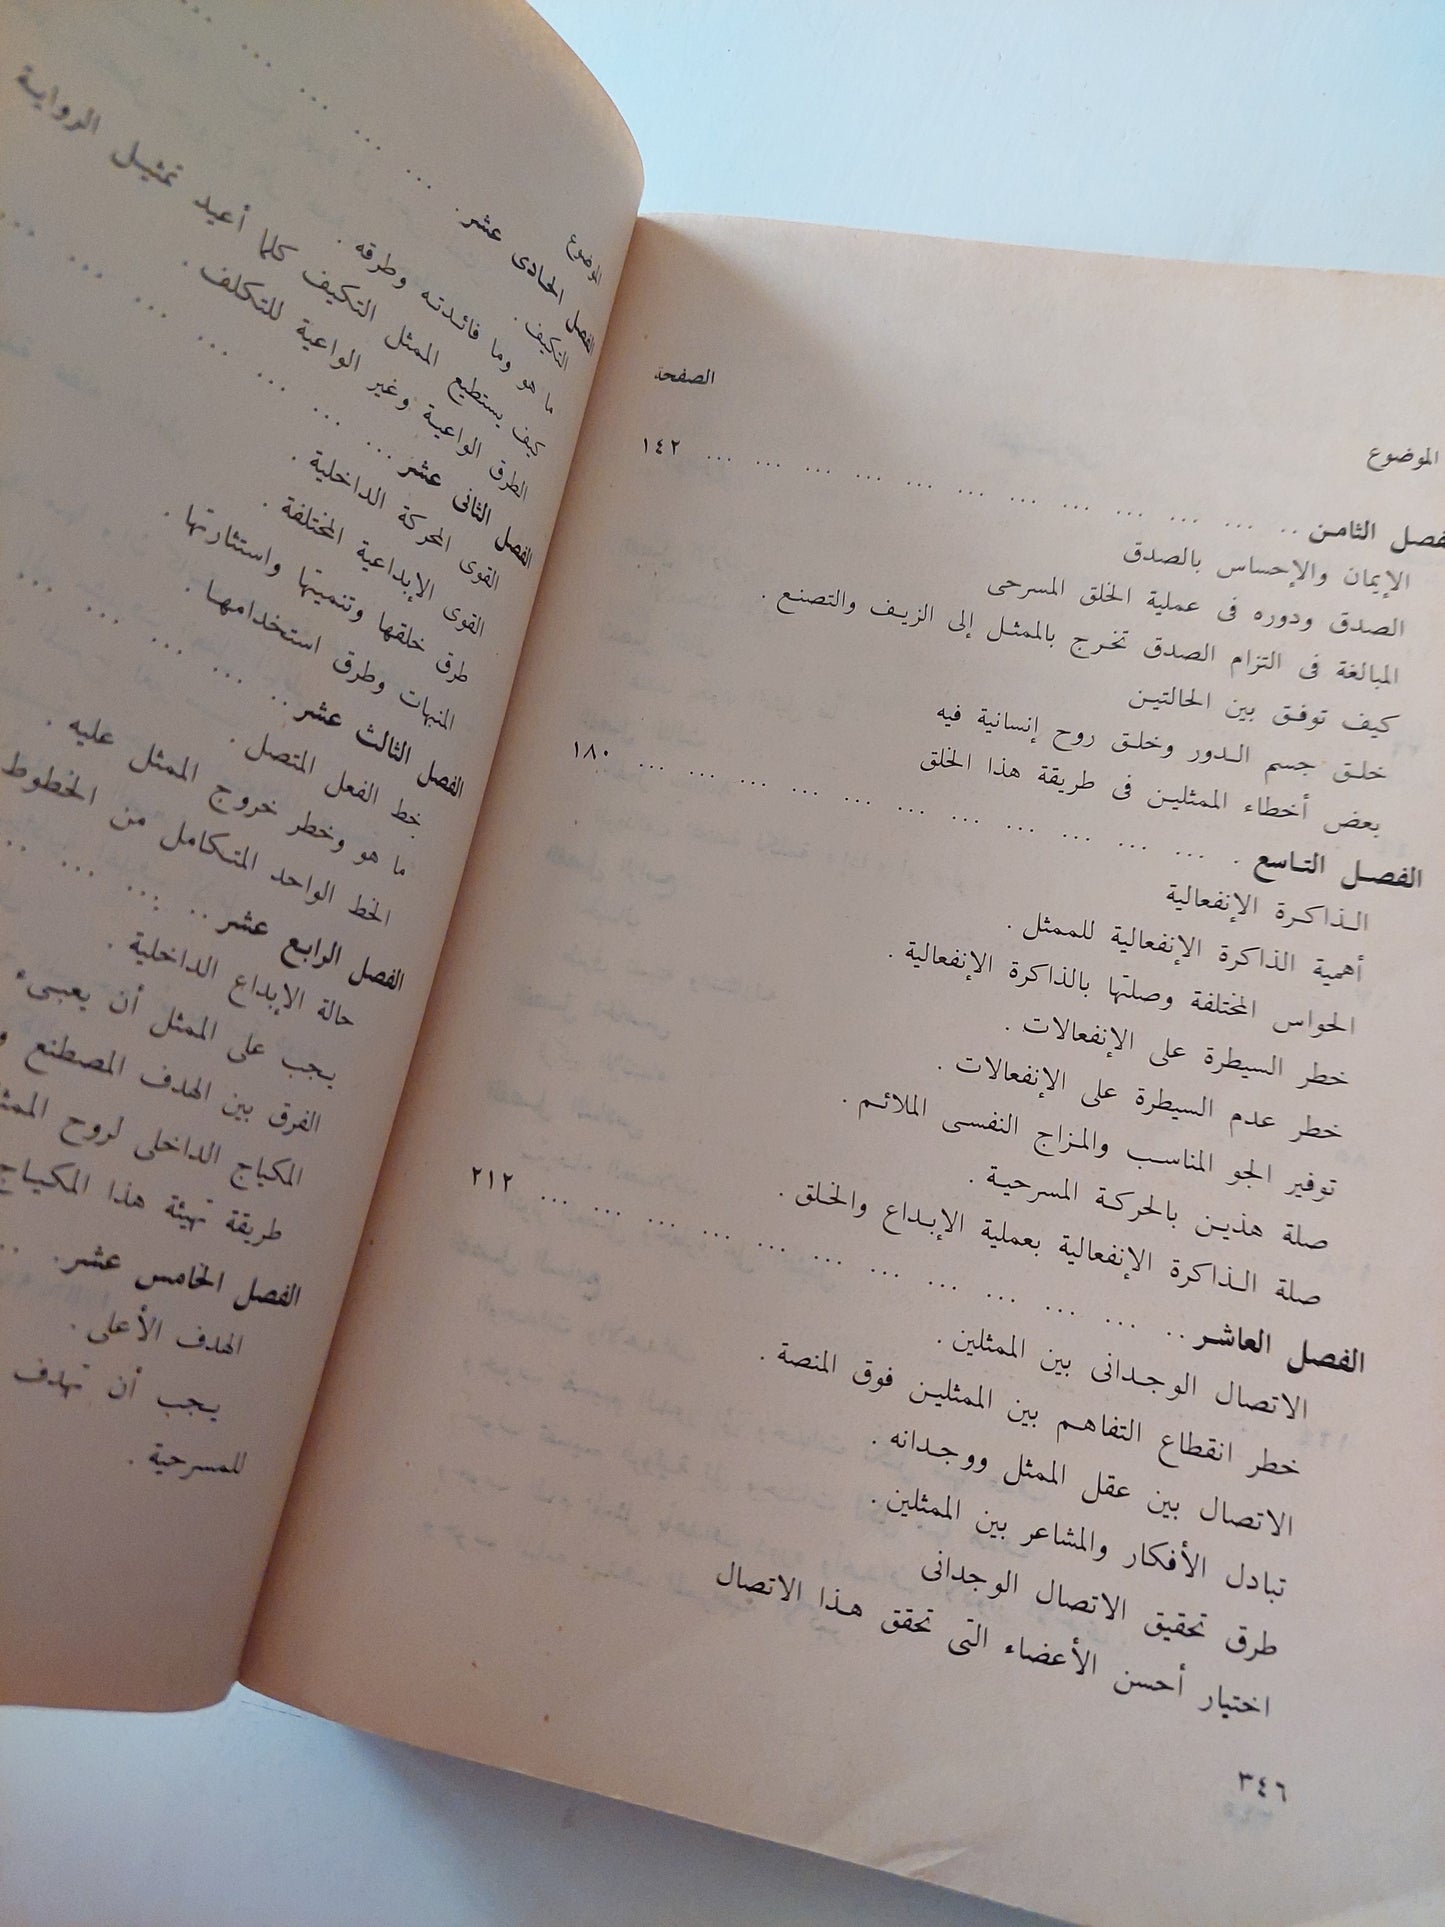 الموضوع
الصفحة
الفصل الثامن .. ... ... ... ... ... ... ... ... ... ... ... ١٤٢
الإيمان والإحساس بالصدق
الصدق ودوره فى عملية الخلق المسرحى
المبالغة فى التزام الصدق تخرج بالممثل إلى الزيف والتصنع .
كيف توفق بين الحالتين
خلق جسم الدور وخلق روح إنسانية فيه
بعض أخطاء الممثلين فى طريقة هذا الخلق
الفصل التاسع . ... ... ... ... ... ... ... ... ... ... ... ١٨٠
الذاكرة الإنفعالية
أهمية الذاكرة الإنفعالية للممثل .
الحواس المختلفة وصلتها بالذاكرة الإنفعالية .
خطر السيطرة على الإنفعالات .
خطر عدم السيطرة على الإنفعالات .
توفير الجو المناسب والمزاج النفسى الملائم .
صلة هذين بالحركة المسرحية .
صلة الذاكرة الإنفعالية بعملية الإبداع والخلق .
الفصل العاشر .. ... ... ... ... ... ... ... ... ... ... ... ٢١٢
الاتصال الوجدانى بين الممثلين .
خطر انقطاع التفاهم بين الممثلين فوق المنصة .
الاتصال بين عقل الممثل ووجدانه .
تبادل الأفكار والمشاعر بين الممثلين .
طرق تحقيق الاتصال الوجدانى
اختيار أحسن الأعضاء التى تحقق هذا الاتصال
٣٤٦
الموضوع
الفصل الحادى عشر . ... ... ... ... ...
التكيف .
ما هو وما فائدته وطرقه .
كيف يستطيع الممثل التكيف كلما أعيد تمثيل الرواية
الطرق الواعية وغير الواعية للتكلف .
الفصل الثانى عشر ... ... ... ... ... ... ... ...
القوى المحركة الداخلية .
القوى الإبداعية المختلفة .
طرق خلقها وتنميتها واستثارتها .
المنبهات وطرق استخدامها .
الفصل الثالث عشر .. ... ... ... ... ...
خط الفعل المتصل .
ما هو وخطر خروج الممثل عليه .
الخط الواحد المتكامل من الخطوط
الفصل الرابع عشر .. ... ... ...
حالة الإبداع الداخلية .
يجب على الممثل أن يعبىء
الفرق بين الهدف المصطنع
المكياج الداخلى لروح
طريقة تهيئة هذا المكياج
الفصل الخامس عشر . ..
الهدف الأعلى .
يجب أن تهدف
للمسرحية .